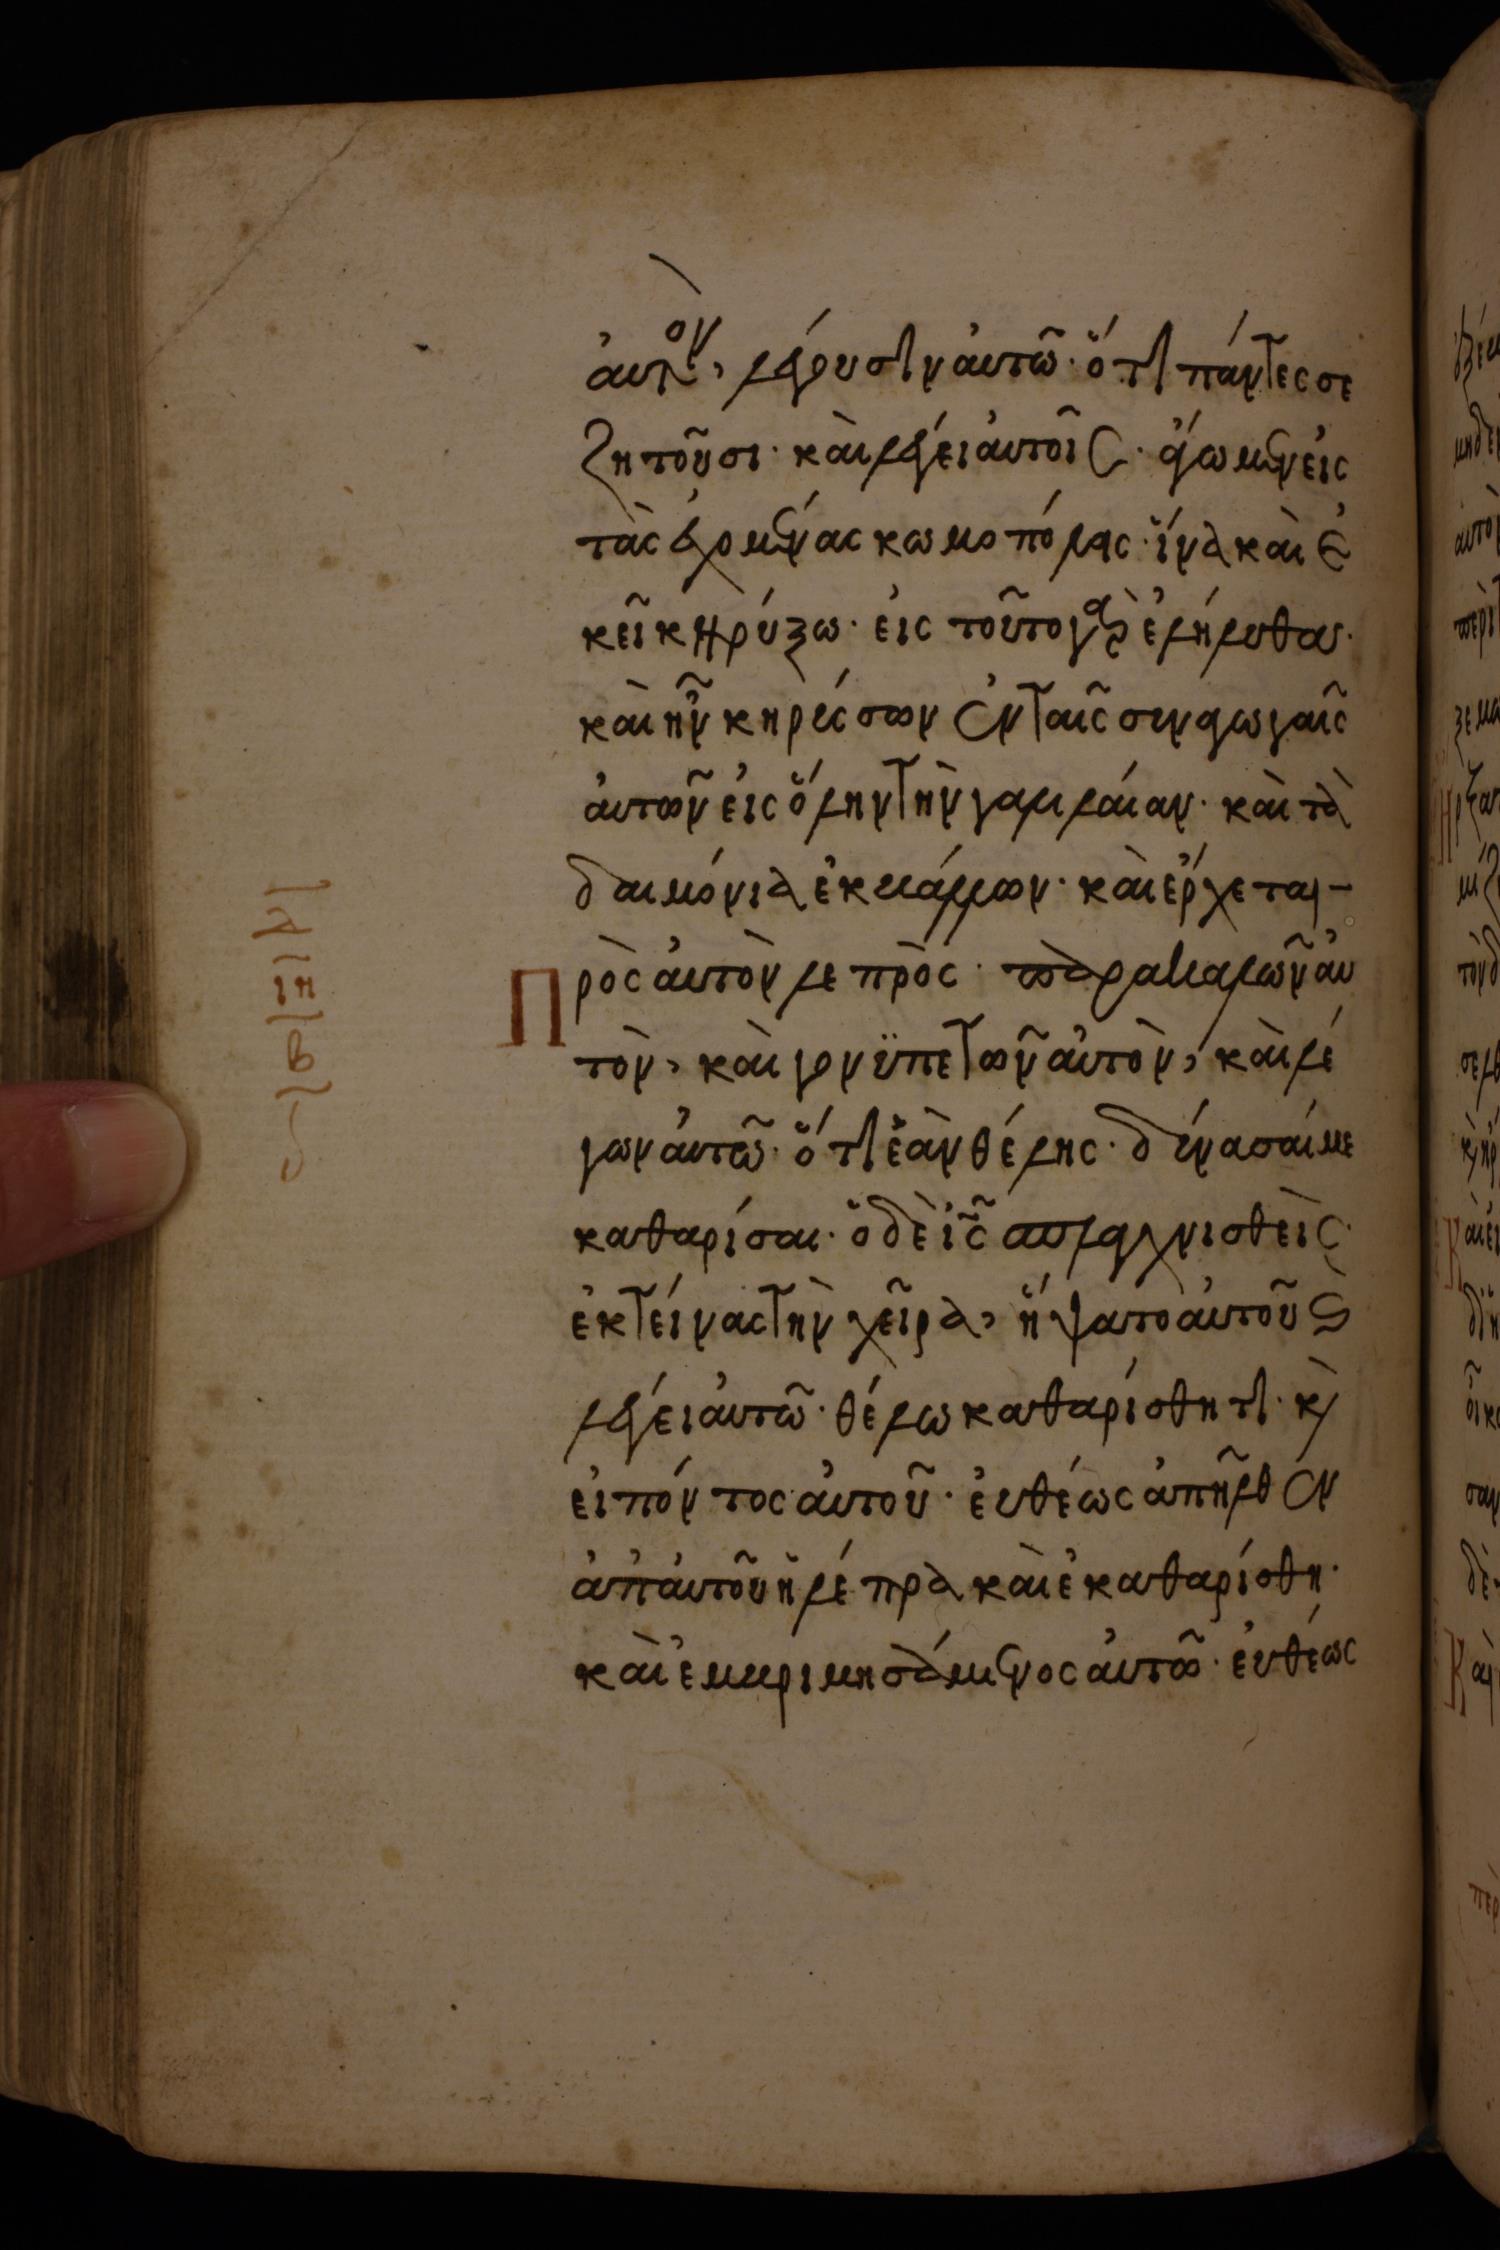 αὐτὸν, λέγουσιν αὐτῶ· ὅτι πάντες σε
ζητοῦσι· καὶ λέγει αὐτοῖς· ἄγωμεν εἰς
τὰς ἐχομένας κωμοπόλεις· ἵνα καὶ ἐ
κεῖ κηρύξω· εἰς τοῦτο γὰρ ἐλήλυθα·
καὶ ἦν κηρύσσων ἐν ταῖς συναγωγαῖς
αὐτῶν εἰς ὅλην τὴν γαλιλαίαν· καὶ τὰ
δαιμόνια ἐκβάλλων· καὶ ἔρχεται
Πρὸς αὐτὸν λεπρὸς· παρακαλῶν αὐ
τὸν, καὶ γονϋπετῶν αὐτὸν, καὶ λέ
γων αὐτῶ· ὅτι ἐὰν θέλης· δύνασαί με
καθαρίσαι· ὁ δὲ ις σπλαγχνισθεὶς·
ἐκτείνας τὴν χεῖρα, ἥψατο αὐτοῦ ϛ
λέγει αὐτῶ· θέλω καθαρίσθητι· κὶ
εἰπόντος αὐτοῦ· εὐθέως ἀπῆλθεν
ἀπ αὐτοῦ ἡ λέπρα καὶ ἐκαθαρίσθη·
καὶ ἐμβριμησάμενος αὐτῶ· εὐθέως